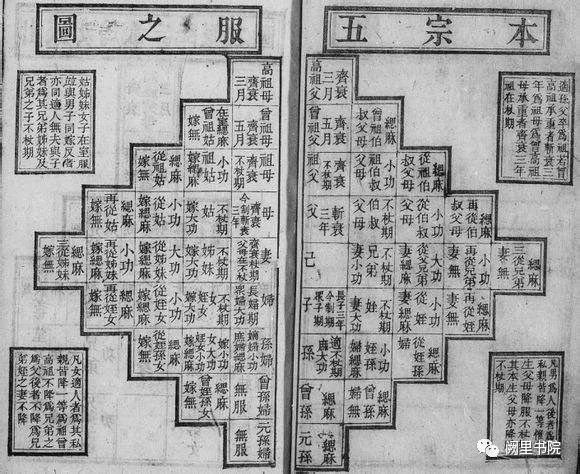 本宗五
服之圖
適孫父卒為祖若曾
高祖承重者斬三
年為祖母為曾高祖
母承重者齊衰三年
祖在杖期
高祖父 齊衰三月
高祖母 齊衰三月
曾祖父 齊衰五月
曾祖伯叔父母 緦麻
曾祖母 齊衰五月
曾祖姑 在室緦麻 嫁無
祖父 齊衰不杖期
祖伯叔父母 小功
從祖伯叔父母 緦麻
祖母 齊衰不杖期
祖姑 小功 嫁緦麻
從祖姑 緦麻 嫁無
父 斬衰三年
伯叔父母 不杖期
從伯叔父母 小功
再從伯叔父母 緦麻
母 齊衰三年 今制斬衰三年
姑 不杖期 嫁大功
從姑 小功 嫁緦麻
再從姑 緦麻 嫁無
己
兄弟 不杖期 妻小功
從兄弟 大功 妻緦麻
再從兄弟 小功 妻無
三從兄弟 緦麻 妻無
妻 齊衰杖期 父母在不杖
姊妹 不杖期 嫁大功
從姊妹 大功 嫁小功
再從姊妹 小功 嫁緦麻
三從姊妹 緦麻 嫁無
子 長子三年 今制不杖期 眾子期
姪 不杖期 妻大功
從姪 小功 妻緦麻
再從姪 緦麻 妻無
婦 長婦期 眾婦大功
姪女 不杖期 嫁大功
從姪女 小功 嫁緦麻
再從姪女 緦麻 嫁無
孫 適不杖期 庶大功
姪孫 小功 妻緦麻
從姪孫 緦麻 妻無
孫婦 適婦小功 庶婦緦麻
姪孫女 小功 嫁緦麻
從姪孫女 緦麻 嫁無
曾孫 緦麻
曾姪孫 緦麻 婦無
曾孫婦 無服
曾姪孫女 緦麻 嫁無
元孫 緦麻
元孫婦 無服
姑姊妹女子在室服
竝與男子同嫁反者
亦同適人無夫與子
者為其兄弟姊妹及
兄弟之子不杖期
凡男為人後者為其
私親皆降一等惟本
生父母降服不杖期
其本生父母亦降服
不杖期
凡女適人者為其私
親皆降一等為祖曾
高祖不降為兄弟之
為父後者不降為兄
弟姪之妻不降
阙里书院